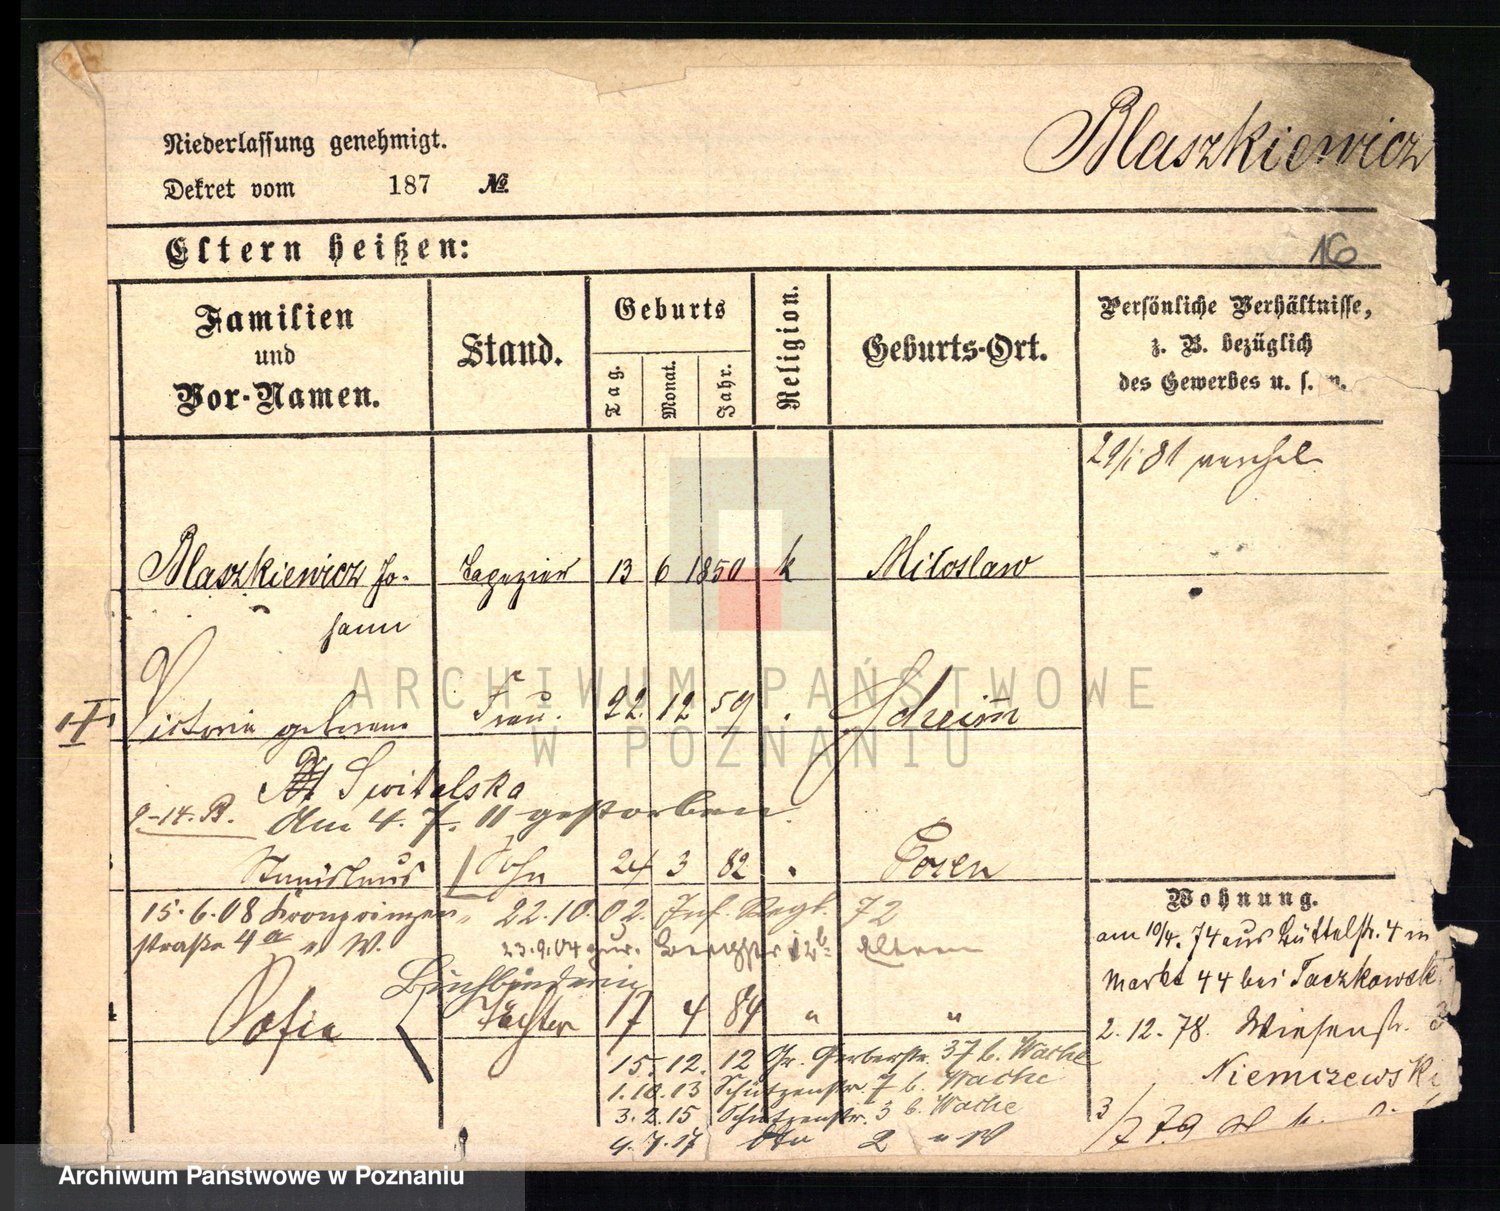 Blaszkiewicz
Niederlassung genehmigt.
Dekret vom 187 №
16
Eltern heißen:
Familien und Vor-Namen.
Stand.
Geburts
Tag.
Monat.
Jahr.
Religion.
Geburts-Ort.
Persönliche Verhältnisse,
z. B. bezüglich
des Gewerbes u. s. w.
29/1 81
Blaszkiewicz Jo- Tapezier 13 6 1850 k Miloslaw
hann
Victoria geborene Frau. 22. 12 59
Switalska
9-14. B. Am 4. 7. 11 gestorben.
Stanislaus Sohn 24 3 82 " Posen
15. 6. 08 Kronprinzen 22. 10. 02. Inf. Regt. 72
straße 4a 23. 9. 04 zur. Eltern
Buchbinderin
Sofia Tochter 17 4 84 " "
15. 12. 12 Gr. Gerberstr. 37 b. Wache
1. 10. 13 Schützenstr. 7 b. Wache
3. 2. 15 Schützenstr. 3 b. Wache
4. 7. 17 dto 2
Wohnung.
am 10/4. 74 aus Büttelstr. 4 in
Markt 44 bei Taczkowski
2. 12. 78. Wiesenstr.
Niemczewski
3/7 79
ARCHIWUM PAŃSTWOWE
W POZNANIU
Archiwum Państwowe w Poznaniu